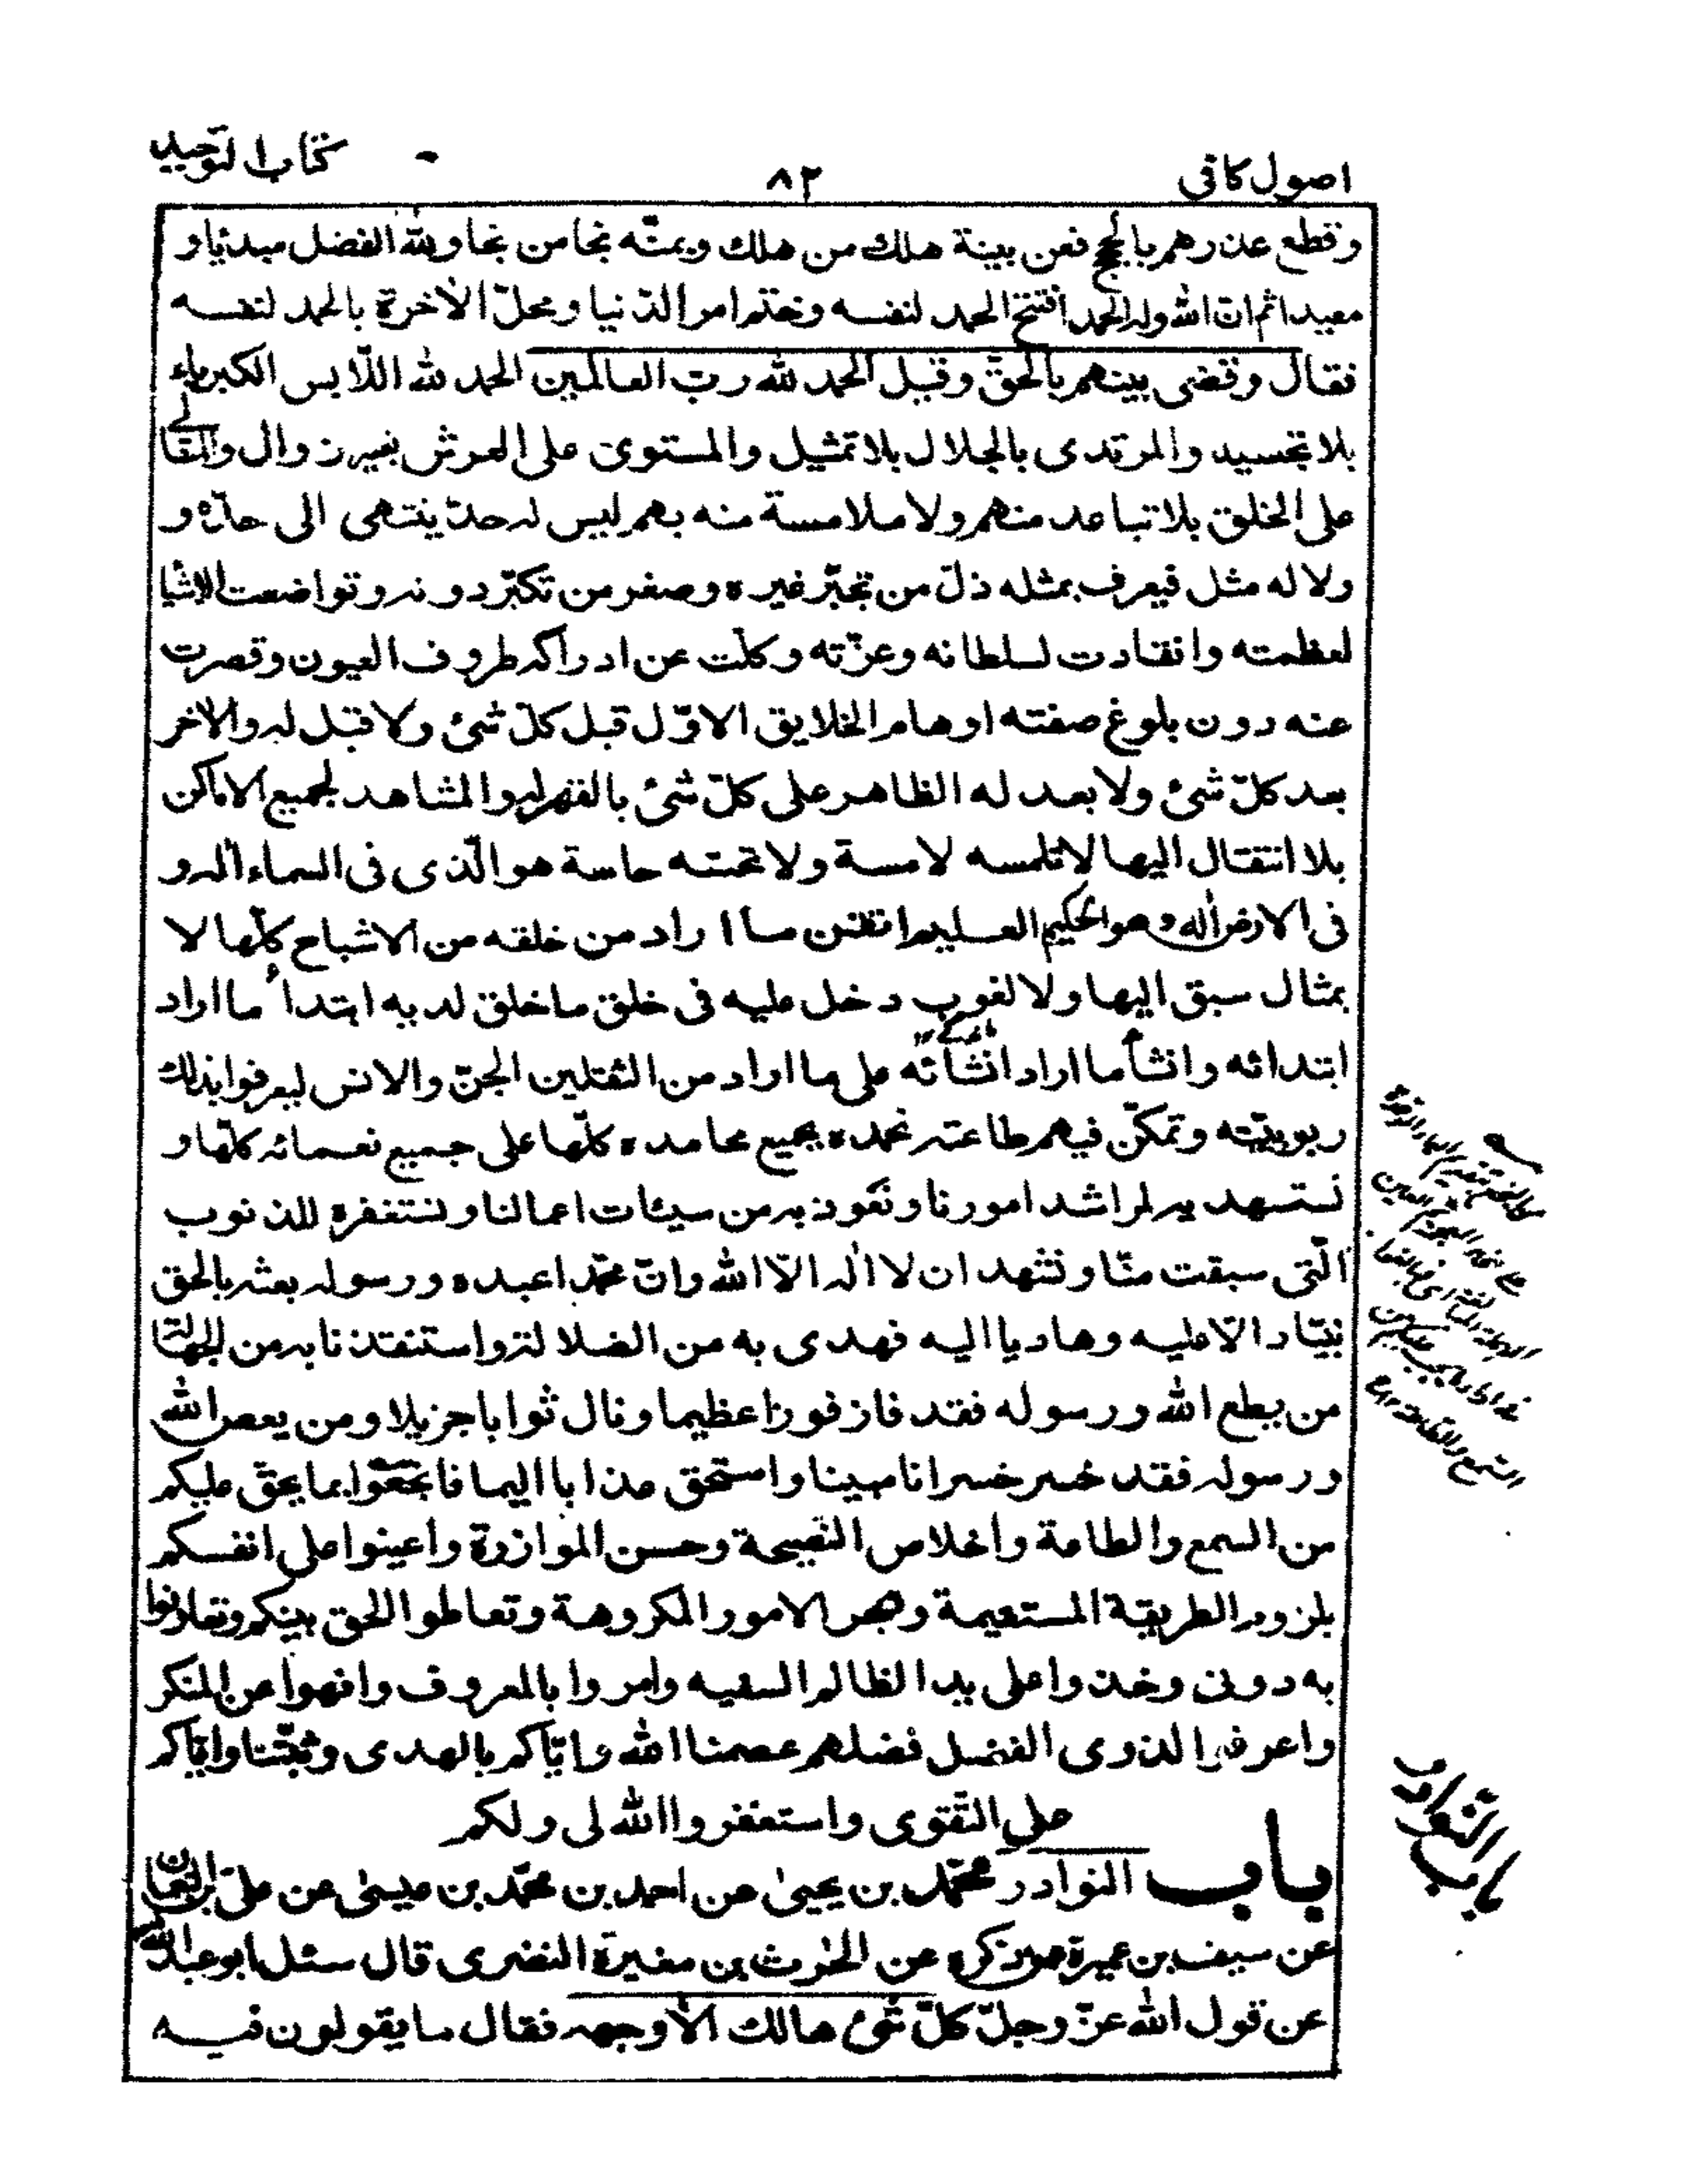 اصول كافى
٨٢
كتاب التوحيد
وقطع عذرهم بالحجج فعن بينة هلك من هلك وبمنّه نجا من نجا ولله الفضل مبدئا و
معيدا ثم ان الله وله الحمد افتتح الحمد لنفسه وختم امر الدّنيا ومحلّ الآخرة بالحمد لنفسه
فقال وقضى بينهم بالحقّ وقيل الحمد لله ربّ العالمين الحمد لله اللّابس الكبرياء
بلا تجسيد والمرتدى بالجلال بلا تمثيل والمستوى على العرش بغير زوال والمتعالى
على الخلق بلا تباعد منهم ولا ملامسة منه بهم ليس له حدّ ينتهى الى حدّه و
ولا له مثل فيعرف بمثله ذلّ من تجبّر غيره وصغر من تكبّر دونه وتواضعت الاشيا
لعظمته وانقادت لسلطانه وعزّته وكلّت عن ادراكه طروف العيون وقصرت
عنه دون بلوغ صفته اوهام الخلايق الاوّل قبل كلّ شئ ولا قبل له والآخر
بعد كلّ شئ ولا بعد له الظاهر على كلّ شئ بالقهر له والمشاهد لجميع الاماكن
بلا انتقال اليها لا تلمسه لامسة ولا تحسّه حاسة هو الّذى فى السماء اله و
فى الارض اله وهو الحكيم العليم اتقن ما اراد من خلقه من الاشباح كلّها لا
بمثال سبق اليها ولا لغوب دخل عليه فى خلق ما خلق لديه ابتدأ ما اراد
ابتدائه وانشأ ما اراد انشائه على ما اراد من الثقلين الجنّ والانس ليعرفوا بذلك
ربوبيّته وتمكّن فيهم طاعته نحمده بجميع محامده كلّها على جميع نعمائه كلّها و
نستهديه لمراشد امورنا ونعوذ به من سيئات اعمالنا ونستغفره للذنوب
الّتى سبقت منّا ونشهد ان لا اله الّا الله وانّ محمّدا عبده ورسوله بعثه بالحق
نبيّا دالّا عليه وهاديا اليه فهدى به من الضلالة واستنقذنا به من الجهالة
من يطع الله ورسوله فقد فاز فوزا عظيما ونال ثوابا جزيلا ومن يعص الله
ورسوله فقد خسر خسرانا مبينا واستحق عذابا اليما فابخعوا بما يحقّ عليكم
من السمع والطاعة واخلاص النّصيحة وحسن الموازرة واعينوا على انفسكم
بلزوم الطريقة المستقيمة وهجر الامور المكروهة وتعاطوا الحق بينكم وتعاونوا
به دونى وخذوا على يد الظالم السفيه وامروا بالمعروف وانهوا عن المنكر
واعرفوا لذوى الفضل فضلهم عصمنا الله وايّاكم بالهدى وثبّتنا وايّاكم
على التّقوى واستغفروا الله لى ولكم
باب النوادر محمّد بن يحيى عن احمد بن محمّد بن عيسى عن علىّ بن النعمان
عن سيف بن عميرة عمن ذكره عن الحٰرث بن مغيرة النضرى قال سئل ابو عبد الله
عن قول الله عزّ وجلّ كلّ شئ هالك الّا وجهه فقال ما يقولون فيه
باب النّوادر